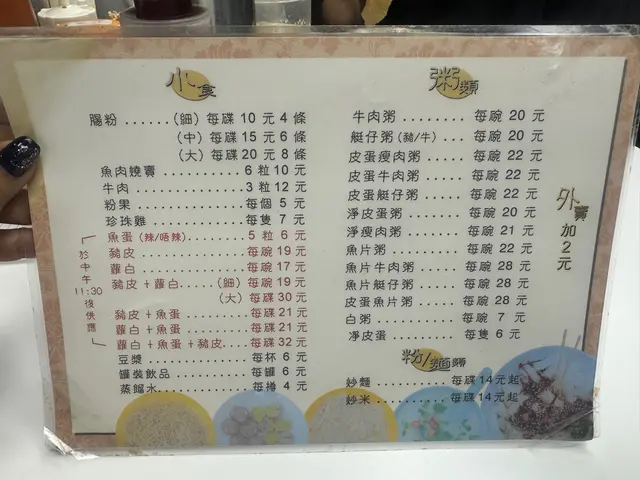 小食
腸粉 ...... (細) 每碟 10 元 4 條
(中) 每碟 15 元 6 條
(大) 每碟 20 元 8 條
魚肉燒賣 ............ 6 粒 10 元
牛肉 ................ 3 粒 12 元
粉果 ................ 每個 5 元
珍珠雞 .............. 每隻 7 元
於中午11:30後供應
魚蛋 (辣/唔辣) ........ 5 粒 6 元
豬皮 ................ 每碗 19 元
蘿白 ................ 每碗 17 元
豬皮 + 蘿白 .....(細) 每碗 19 元
(大) 每碟 30 元
豬皮 + 魚蛋 ......... 每碟 21 元
蘿白 + 魚蛋 ......... 每碟 21 元
蘿白 + 魚蛋 + 豬皮 .... 每碟 32 元
豆漿 ................ 每杯 6 元
罐裝飲品 ............ 每罐 6 元
蒸餾水 .............. 每樽 4 元
粥類
牛肉粥 ........ 每碗 20 元
艇仔粥 (豬/牛) ... 每碗 20 元
皮蛋瘦肉粥 ..... 每碗 22 元
皮蛋牛肉粥 ..... 每碗 22 元
皮蛋艇仔粥 ..... 每碗 22 元
淨皮蛋粥 ....... 每碗 20 元
淨瘦肉粥 ....... 每碗 21 元
魚片粥 ......... 每碗 22 元
魚片牛肉粥 ..... 每碗 28 元
魚片艇仔粥 ..... 每碗 28 元
皮蛋魚片粥 ..... 每碗 28 元
白粥 ........... 每碗 7 元
凈皮蛋 ......... 每隻 6 元
粉/麵類
炒麵 ........... 每碟14元起
炒米 ........... 每碟14元起
外賣加2元